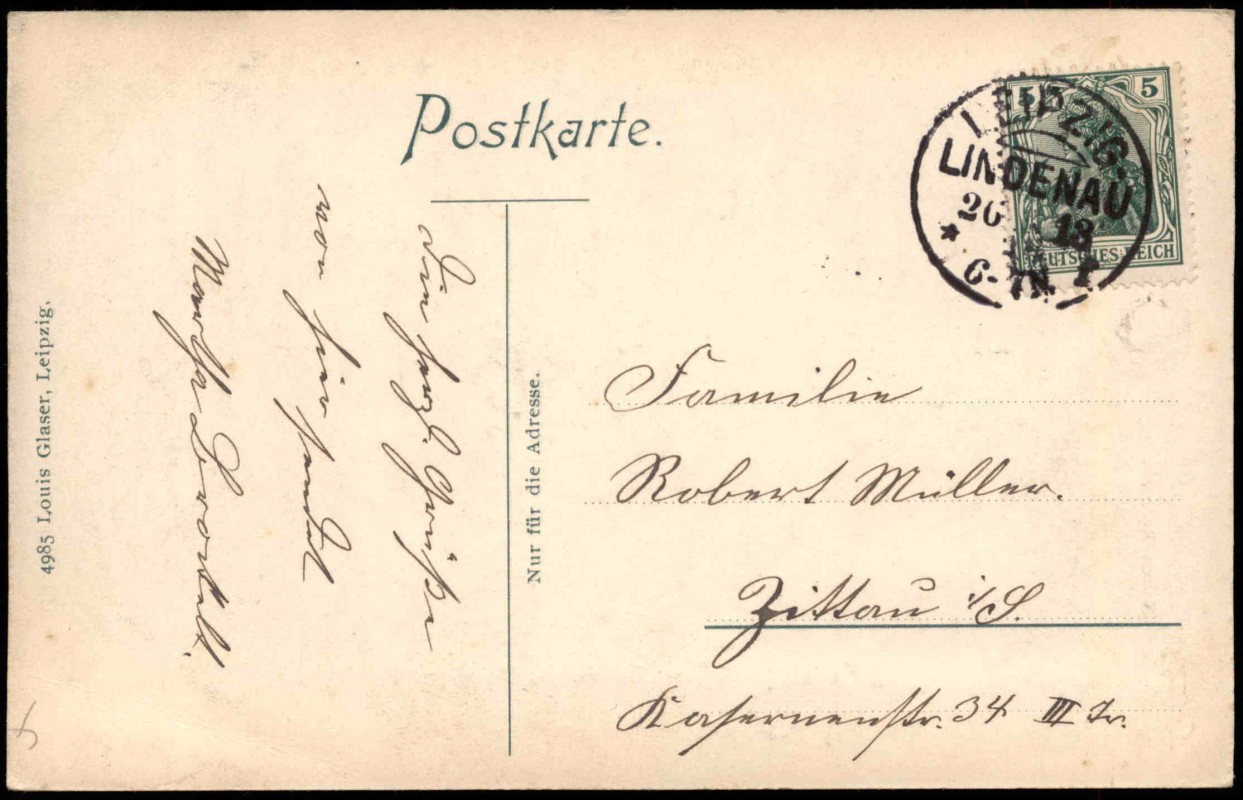 Postkarte.
5 5
LEIPZIG.
LINDENAU
13
6-7N.
DEUTSCHES REICH
Die herzl. Grüße
von hier sendet
Martha
Nur für die Adresse.
4985 Louis Glaser, Leipzig.
Familie
Robert Müller.
Zittau i/S.
Kasernenstr. 34 III Tr.